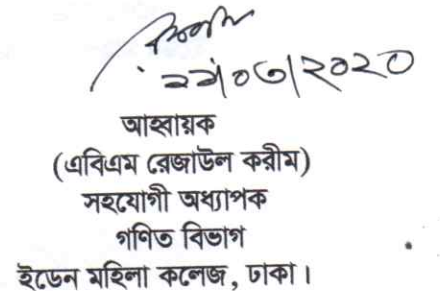 ২২/০৩/২০২০
আহ্বায়ক
(এবিএম রেজাউল করীম)
সহযোগী অধ্যাপক
গণিত বিভাগ
ইডেন মহিলা কলেজ, ঢাকা।